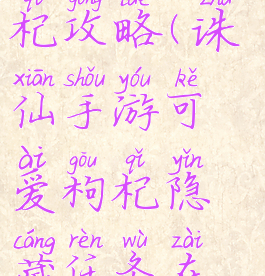 qǐ gōng lüè zhū
杞攻略(诛
xiān shǒu yóu kě
仙手游可
ài gōu qǐ yǐn
爱枸杞隐
cáng rèn wù zài
藏任务在